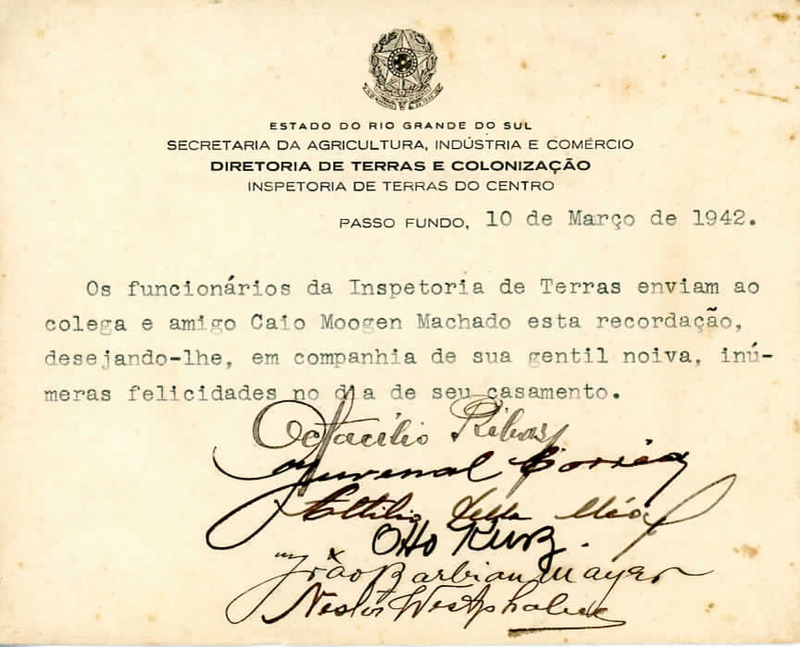 ESTADO DO RIO GRANDE DO SUL
SECRETARIA DA AGRICULTURA, INDÚSTRIA E COMÉRCIO
DIRETORIA DE TERRAS E COLONIZAÇÃO
INSPETORIA DE TERRAS DO CENTRO
PASSO FUNDO, 10 de Março de 1942.
Os funcionários da Inspetoria de Terras enviam ao
colega e amigo Caio Moogen Machado esta recordação,
desejando-lhe, em companhia de sua gentil noiva, inú-
meras felicidades no dia de seu casamento.
Octacilio Ribas
Juvenal Corrêa
Attilio Della Méa
Otto Kurz.
João Barbian Mayer
Nestor Westphalen